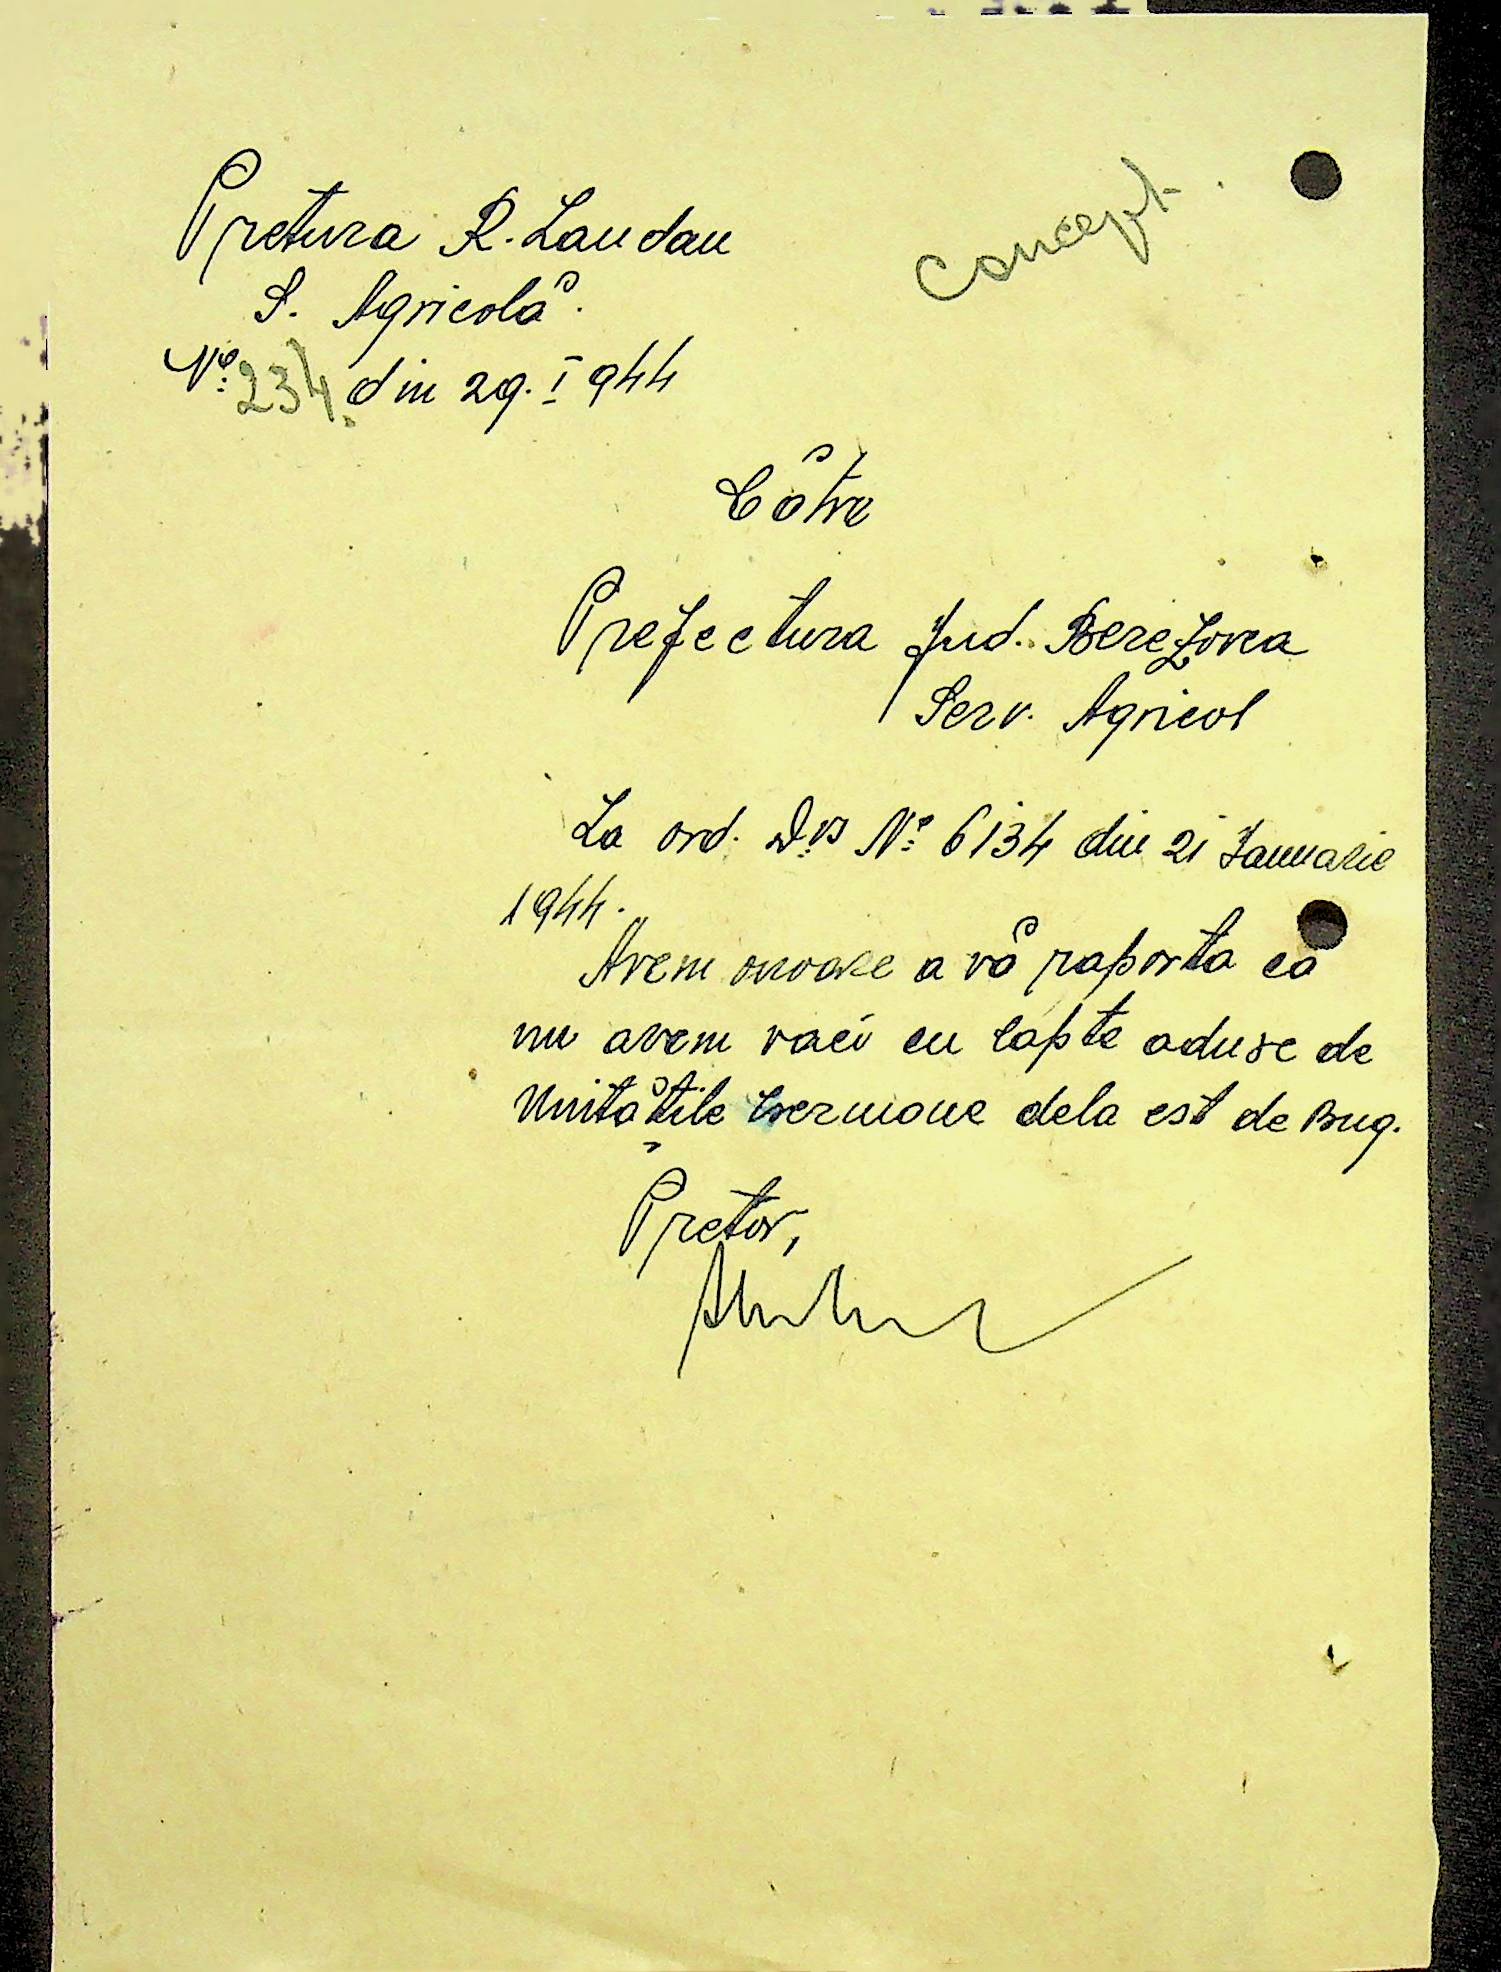 Pretura R. Landau
concept.
S. Agricolă.
No: 234. din 29. I 944
Către
Prefectura Jud. Berezovca
Serv. Agricol
La ord. Dvs No: 6134 din 21 Ianuarie
1944.
Avem onoare a vă raporta că
nu avem vaci cu lapte aduse de
Unitățile germane dela est de Bug.
Pretor,